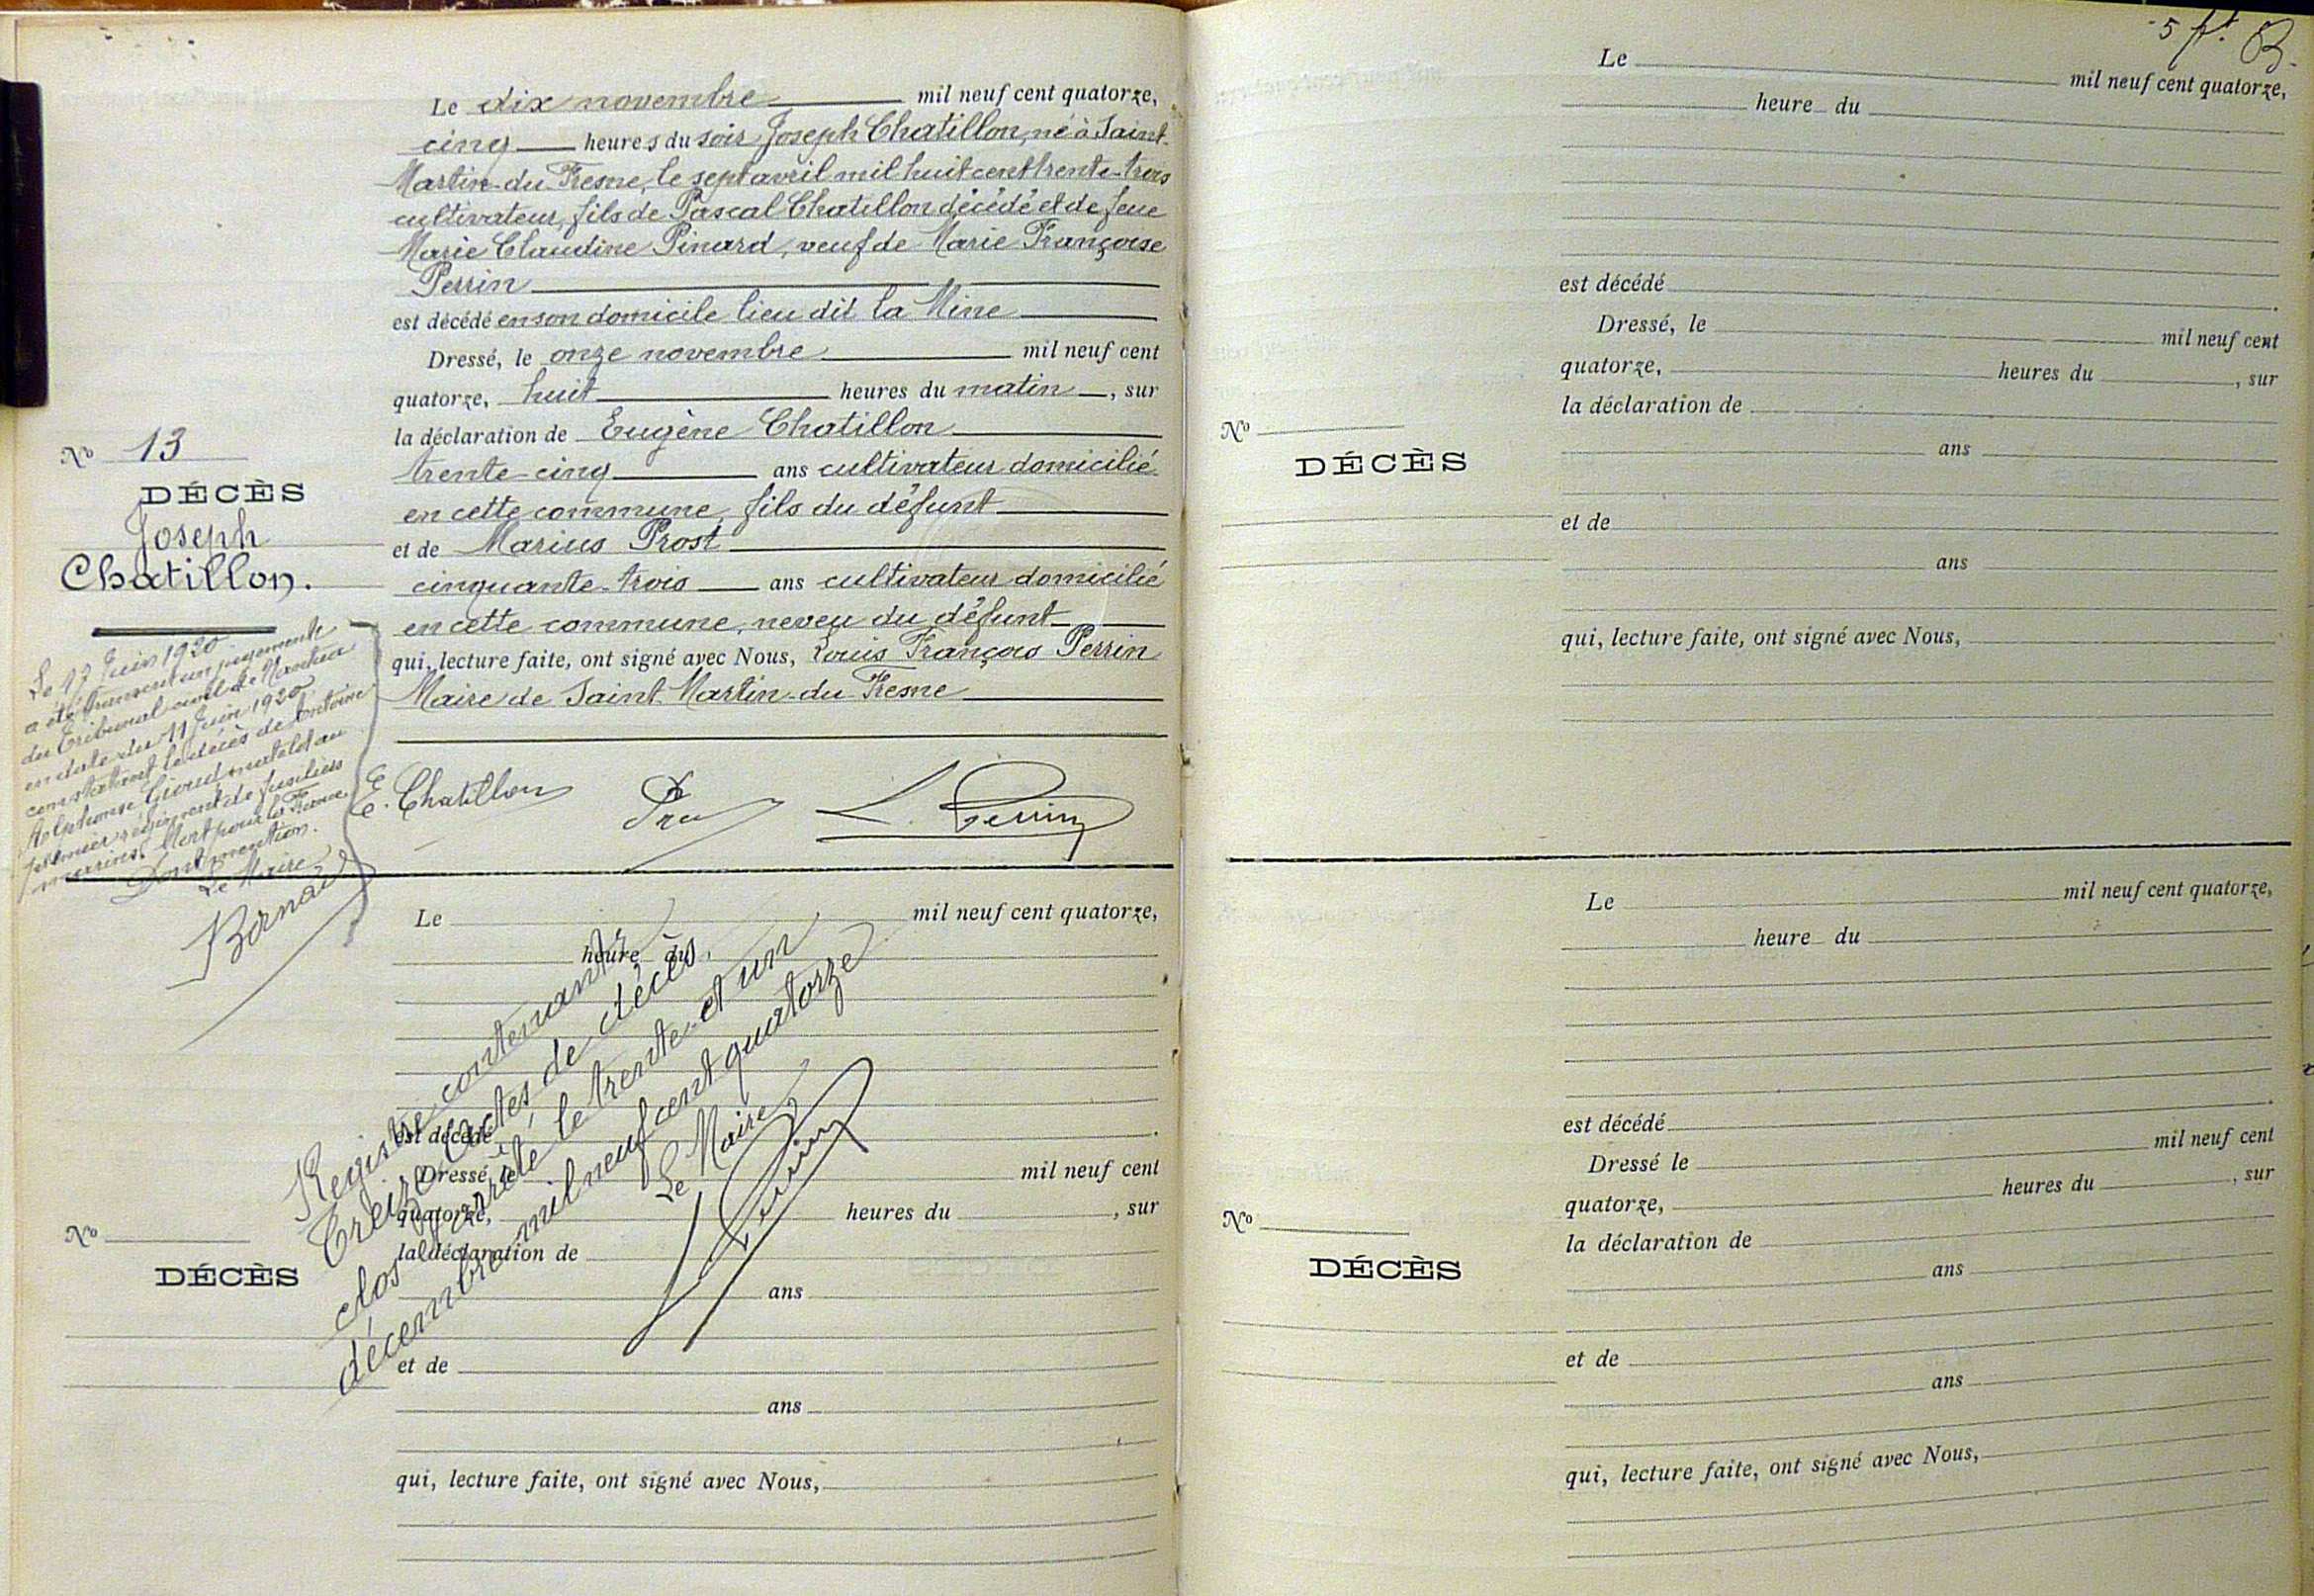 Le dix novembre mil neuf cent quatorze,
cinq heures du soir Joseph Chatillon, né à Saint-
Martin-du-Fresne, le sept avril mil huit cent trente-trois
cultivateur, fils de Pascal Chatillon décédé et de feue
Marie Claudine Pinard, veuf de Marie Françoise
Perrin
est décédé en son domicile lieu dit la Mine
Dressé, le onze novembre mil neuf cent
quatorze, huit heures du matin, sur
la déclaration de Eugène Chatillon
trente-cinq ans cultivateur domicilié
en cette commune, fils du défunt
et de Marius Prost
cinquante-trois ans cultivateur domicilié
en cette commune, neveu du défunt
qui, lecture faite, ont signé avec Nous, Louis François Perrin
Maire de Saint-Martin-du-Fresne
E. Chatillon L. Perrin
No 13
DÉCÈS
Joseph
Chatillon.
Le 17 Juin 1920
a été transcrit un jugement
du Tribunal civil de Nantua
en date du 11 Juin 1920
constatant le décès de Antoine
Alphonse matelot au
premier régiment de fusiliers
marins, Mort pour la France.
Dont mention.
Le Maire,
Le mil neuf cent quatorze,
heure du
est décédé
Dressé, le mil neuf cent
quatorze, heures du , sur
la déclaration de
ans
et de
ans
qui, lecture faite, ont signé avec Nous,
No
DÉCÈS
Registre contenant
treize actes de décès,
clos et arrêté le trente et un
décembre mil neuf cent quatorze
Le Maire,
L. Perrin
5 ft. B.
Le mil neuf cent quatorze,
heure du
est décédé
Dressé, le mil neuf cent
quatorze, heures du , sur
la déclaration de
ans
et de
ans
qui, lecture faite, ont signé avec Nous,
No
DÉCÈS
Le mil neuf cent quatorze,
heure du
est décédé
Dressé le mil neuf cent
quatorze, heures du , sur
la déclaration de
ans
et de
ans
qui, lecture faite, ont signé avec Nous,
No
DÉCÈS